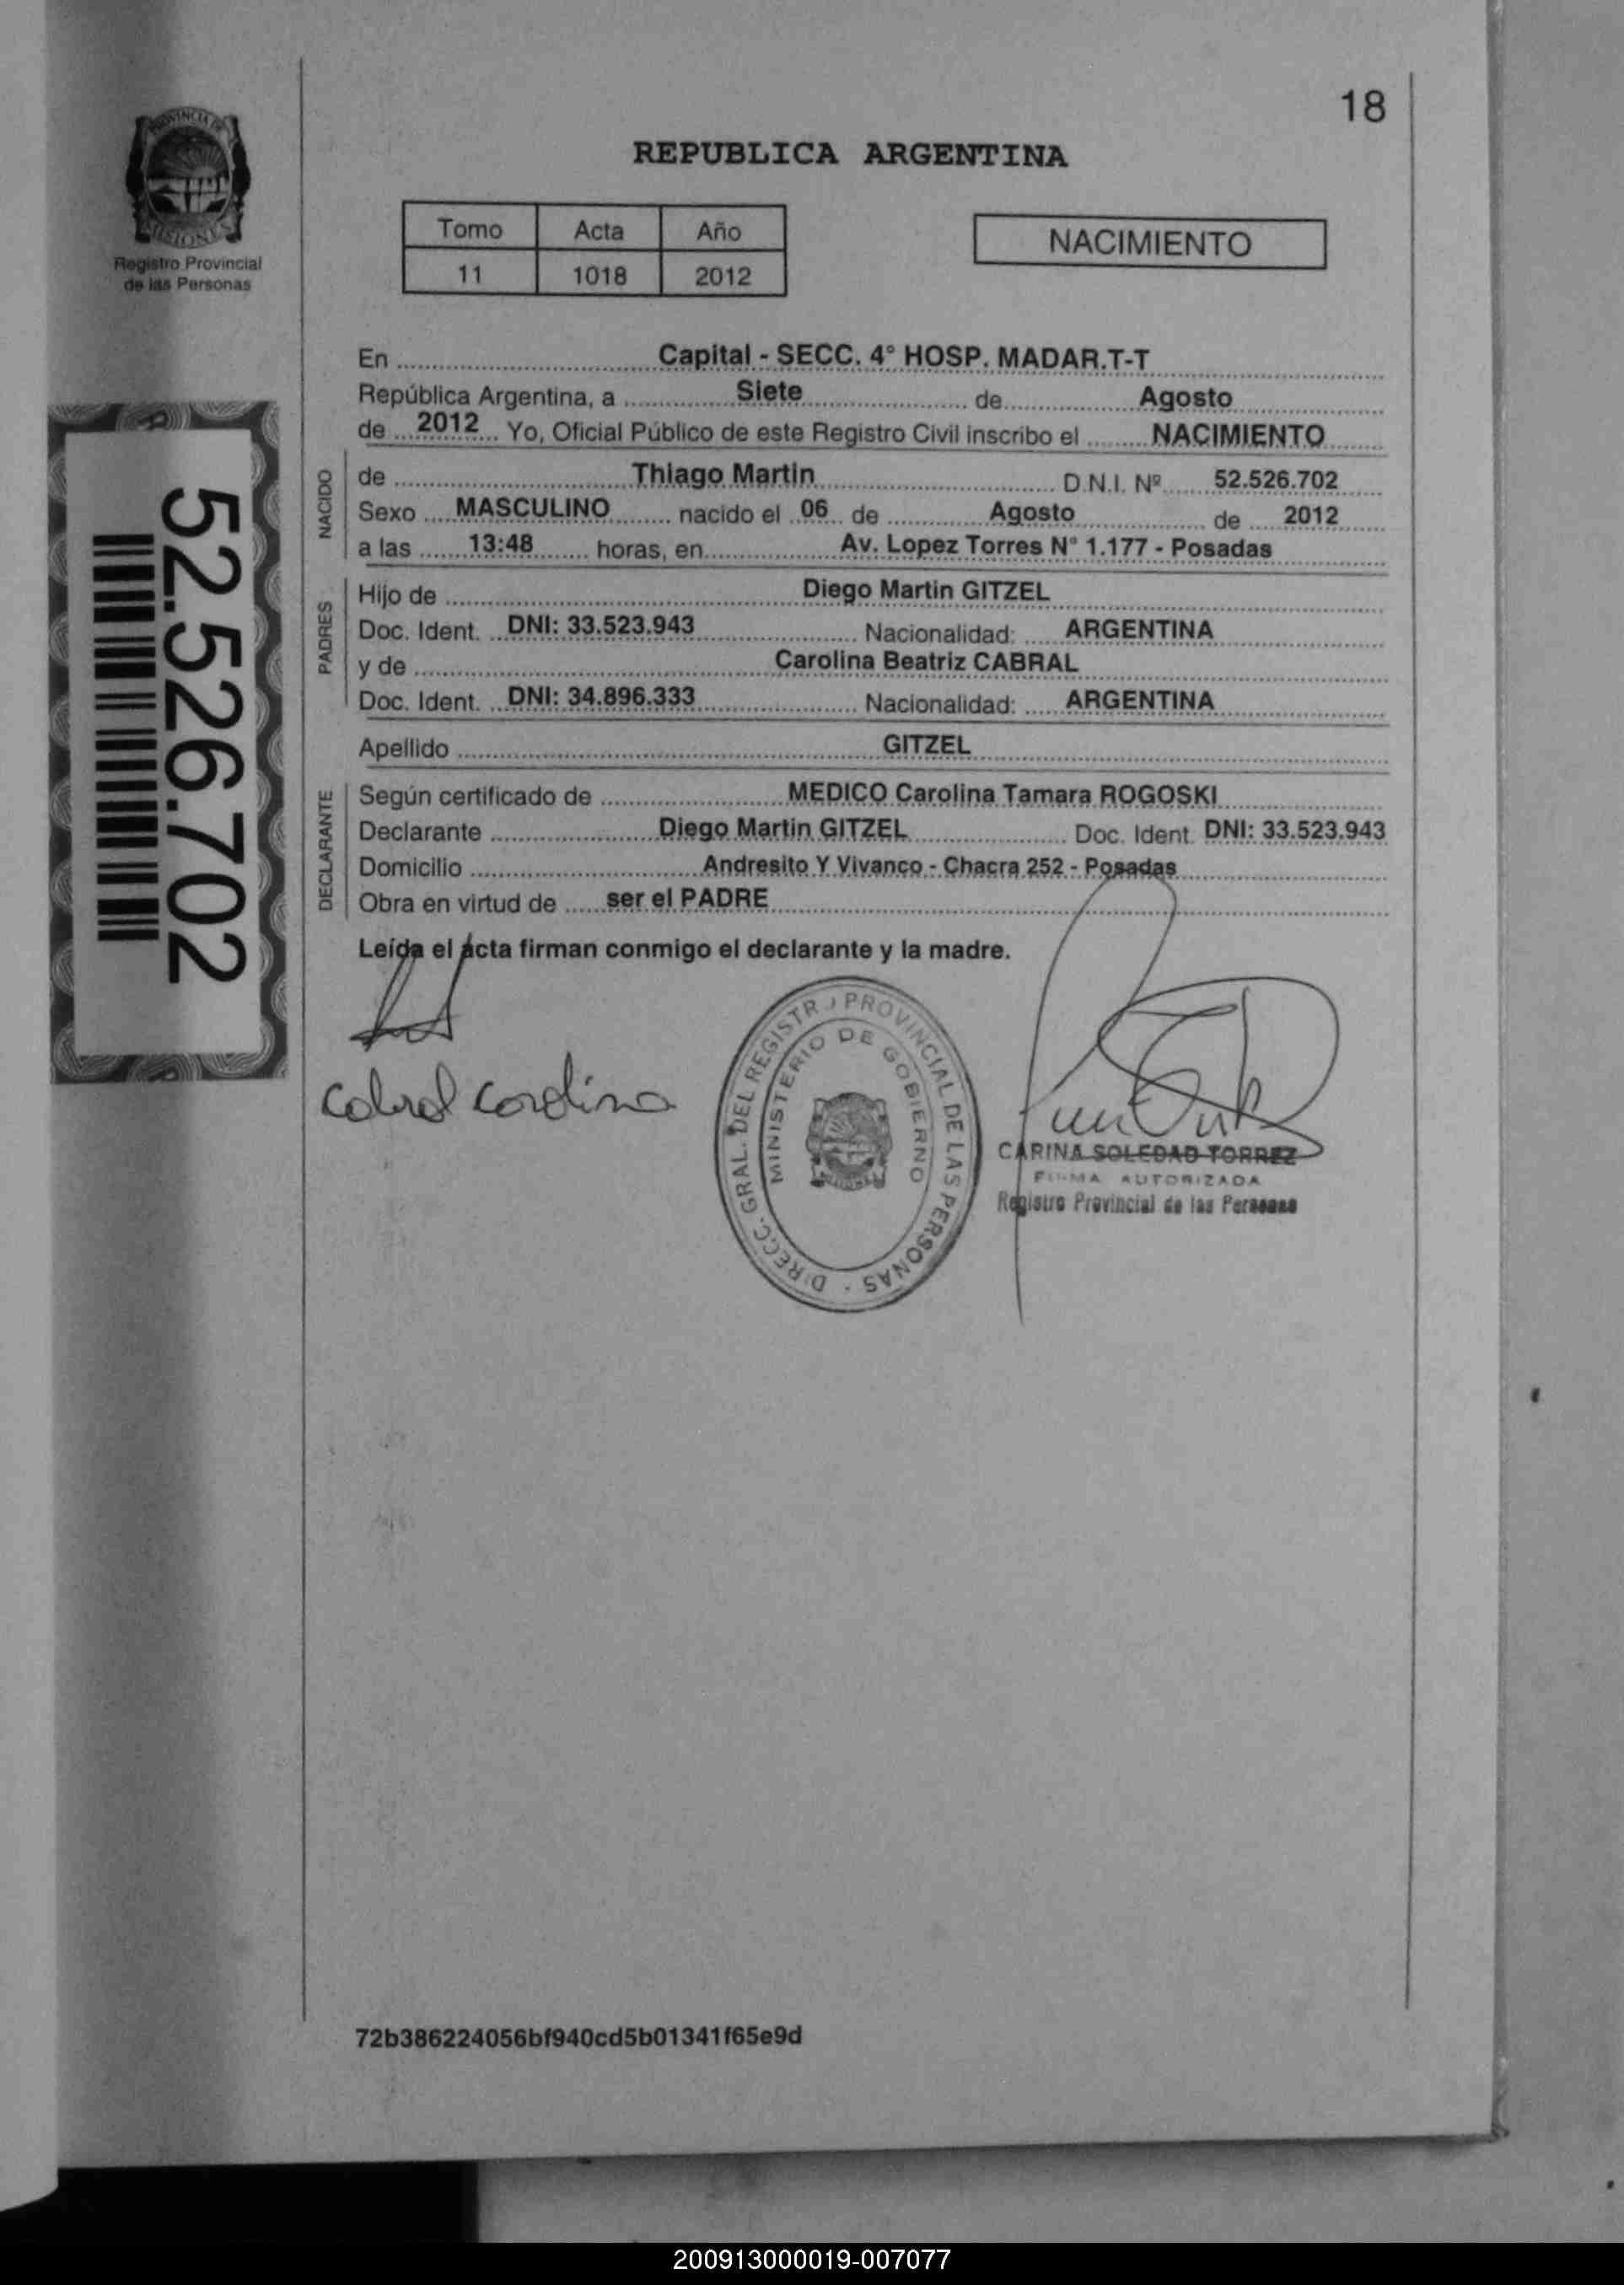 18
PROVINCIA DE
MISIONES
Registro Provincial
de las Personas
REPUBLICA ARGENTINA
Tomo Acta Año
11 1018 2012
NACIMIENTO
52.526.702
En Capital - SECC. 4° HOSP. MADAR.T-T
República Argentina, a Siete de Agosto
de 2012 Yo, Oficial Público de este Registro Civil inscribo el NACIMIENTO
NACIDO
de Thiago Martin D.N.I. Nº 52.526.702
Sexo MASCULINO nacido el 06 de Agosto de 2012
a las 13:48 horas, en Av. Lopez Torres N° 1.177 - Posadas
PADRES
Hijo de Diego Martin GITZEL
Doc. Ident. DNI: 33.523.943 Nacionalidad: ARGENTINA
y de Carolina Beatriz CABRAL
Doc. Ident. DNI: 34.896.333 Nacionalidad: ARGENTINA
Apellido GITZEL
DECLARANTE
Según certificado de MEDICO Carolina Tamara ROGOSKI
Declarante Diego Martin GITZEL Doc. Ident. DNI: 33.523.943
Domicilio Andresito Y Vivanco - Chacra 252 - Posadas
Obra en virtud de ser el PADRE
Leída el acta firman conmigo el declarante y la madre.
Cabral Carolina
DIRECC. GRAL. DEL REGISTRO PROVINCIAL DE LAS PERSONAS -
MINISTERIO DE GOBIERNO
CARINA SOLEDAD TORREZ
FIRMA AUTORIZADA
Registro Provincial de las Personas
72b386224056bf940cd5b01341f65e9d
200913000019-007077